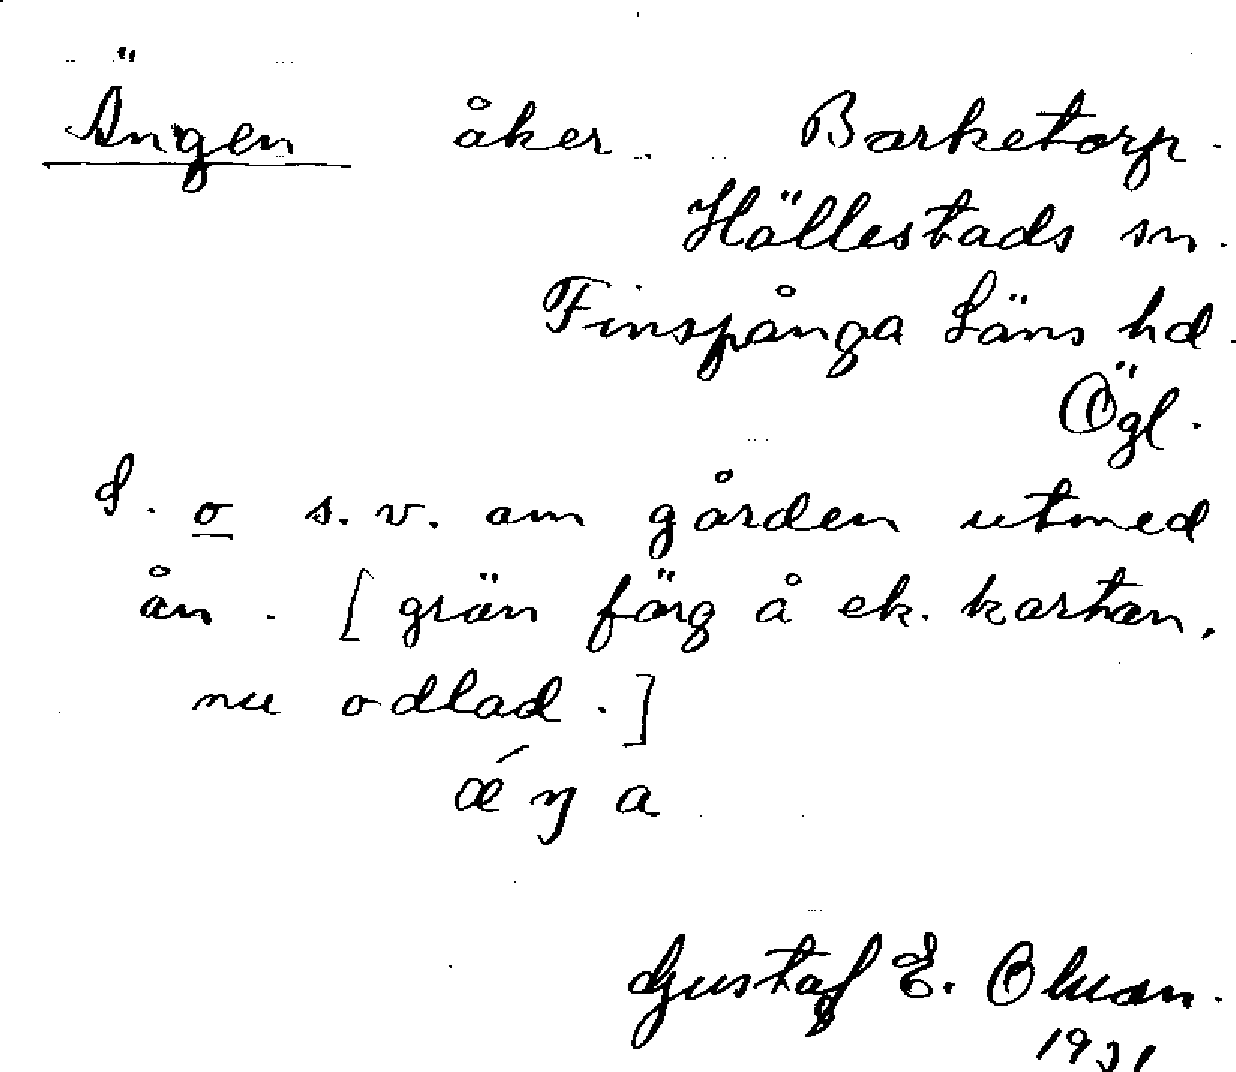 Ängen åker Barketorp.
Hällestads sn.
Finspånga Läns hd.
Ögl.
S. o s.v. om gården utmed
ån. [grön färg å ek. kartan,
nu odlad.]
ǽŋa
Gustaf E.
1931